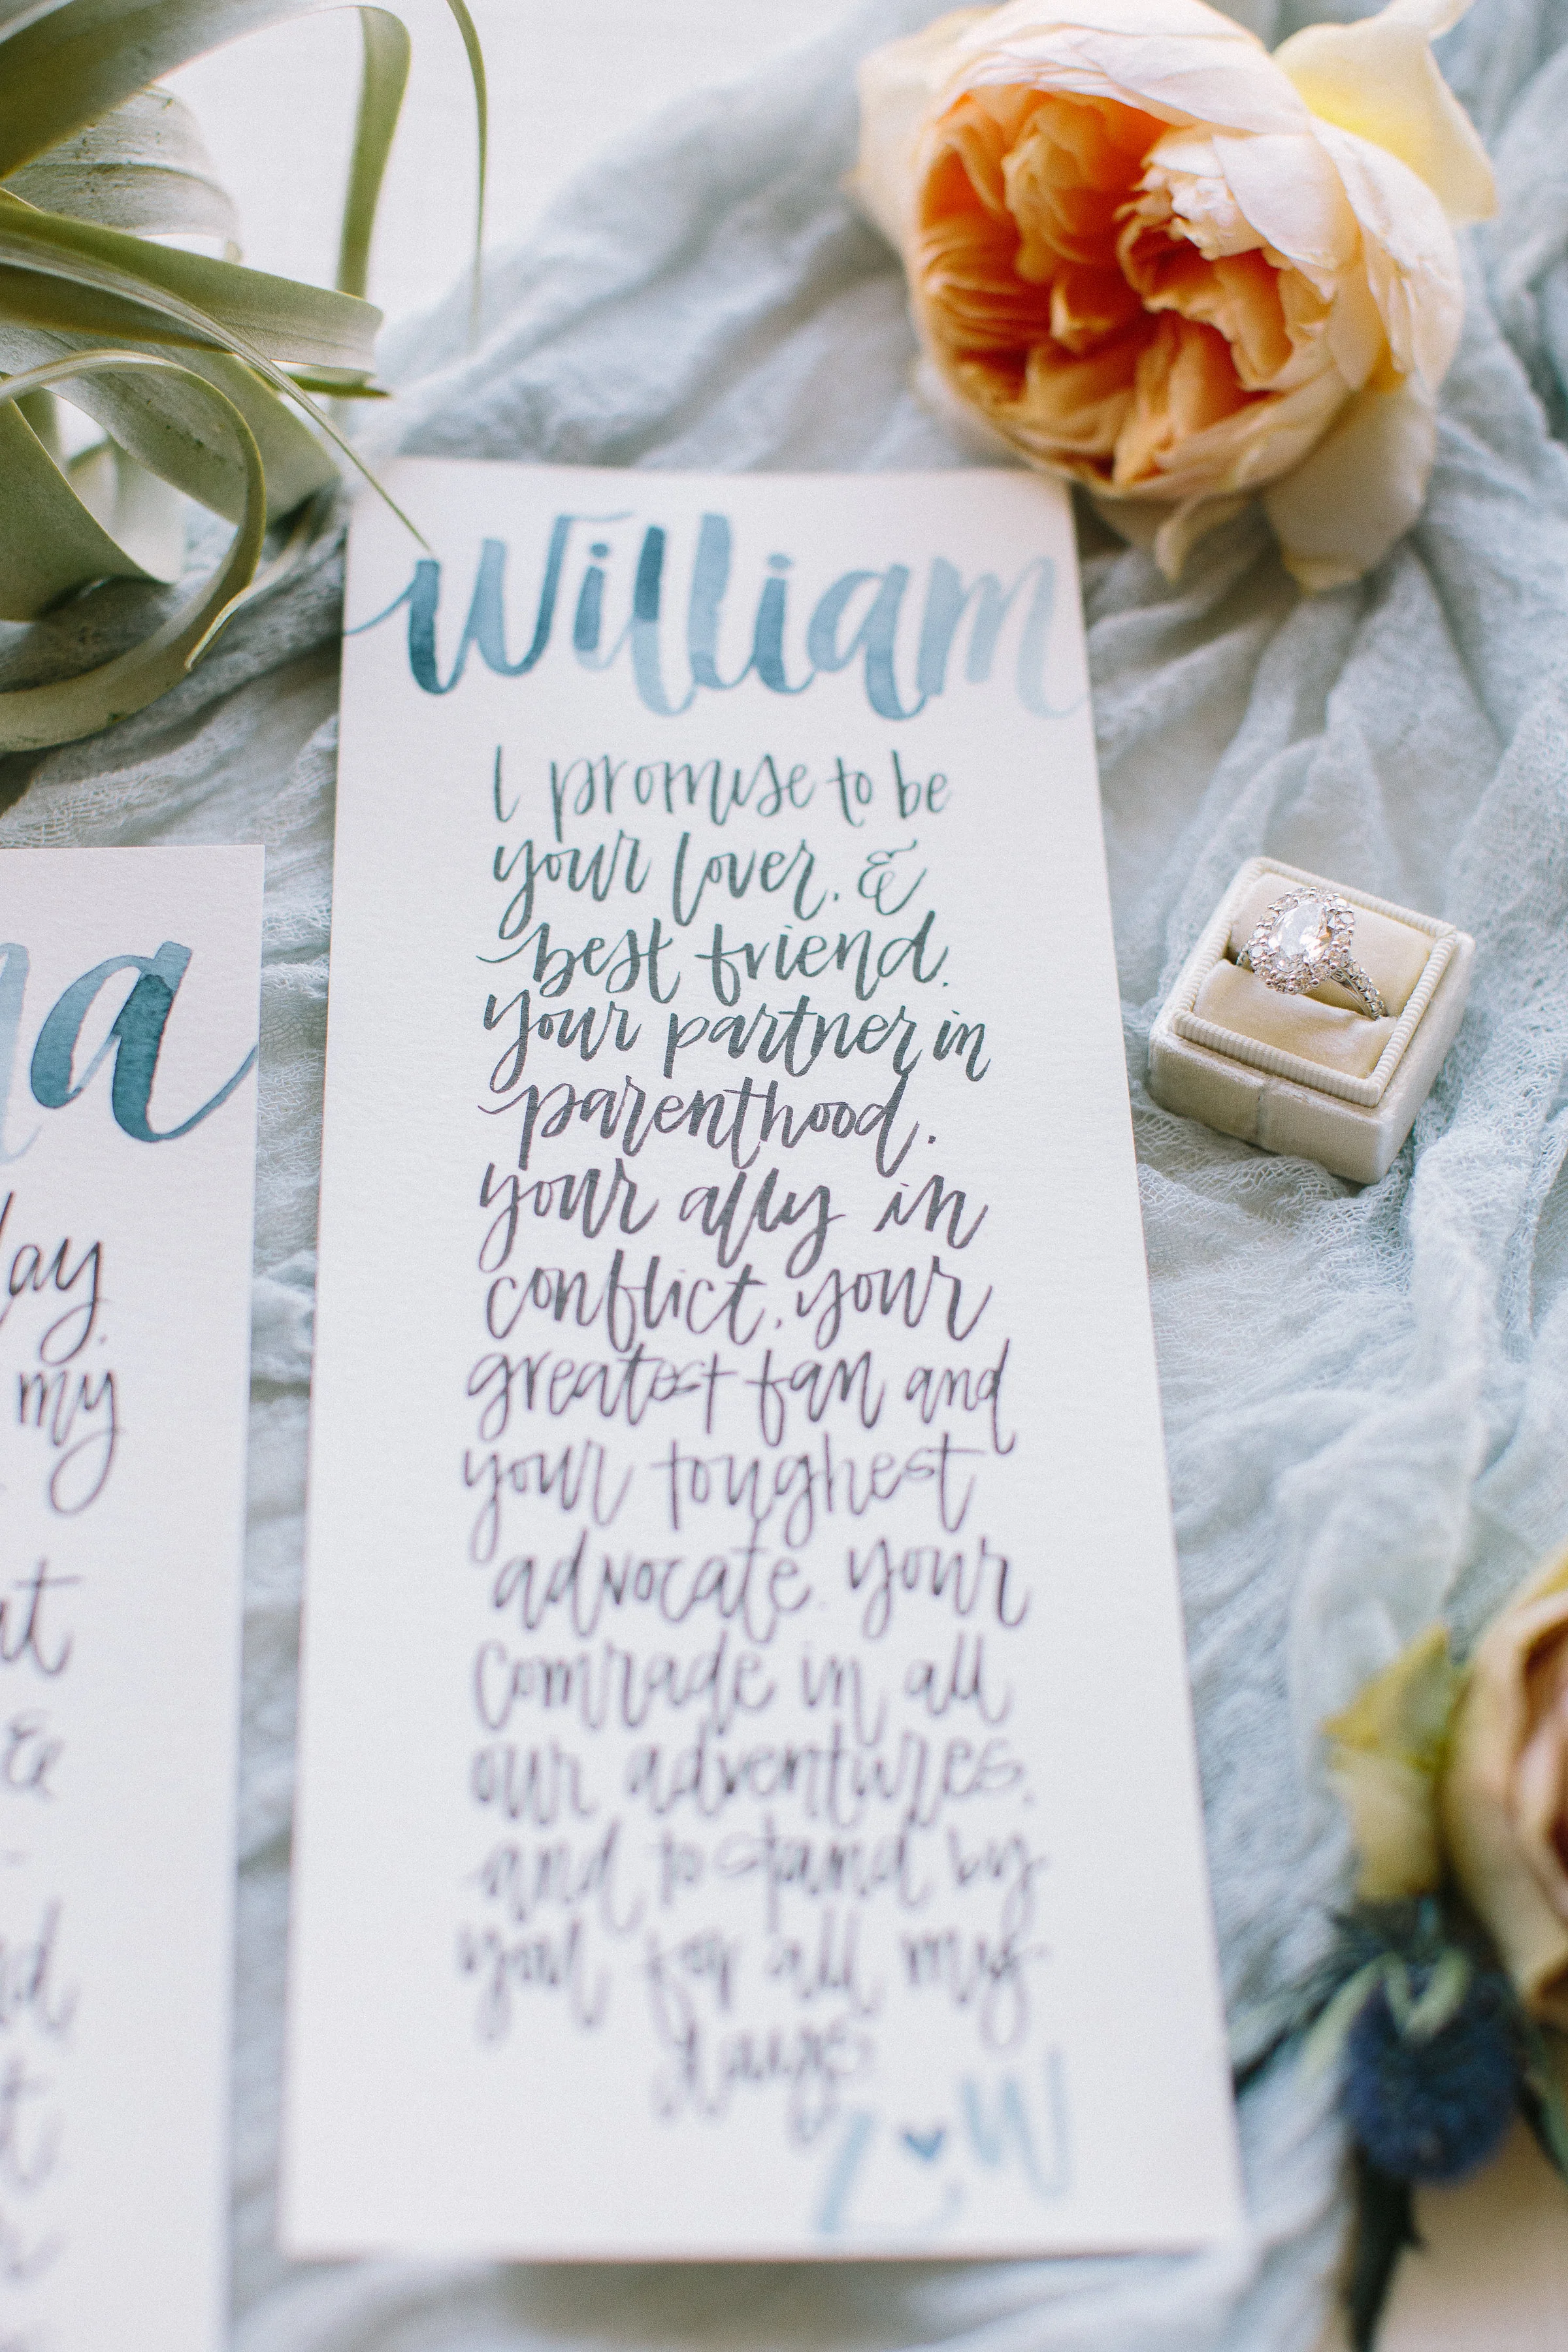 William
I promise to be
your lover, &
best friend,
your partner in
parenthood,
your ally in
conflict, your
greatest fan and
your toughest
advocate, your
comrade in all
our adventures,
and to stand by
you for all my
days
L W
a
my
&